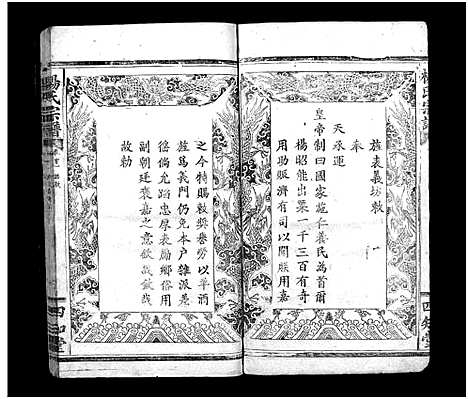 楊氏宗譜
旌表義坊敕
奉
天承運
皇帝制曰國家施仁養民為首爾
楊昭能出粟一千三百有奇
用助賑濟有司以聞朕用嘉
之今特賜敕獎勞以羊酒
旌為義門仍免本户雜派差
徭倘允蹈忠厚表勵鄉俗用
副朝廷褒嘉之意欽哉欽哉
故勅
楊氏宗譜
四知堂
四知堂